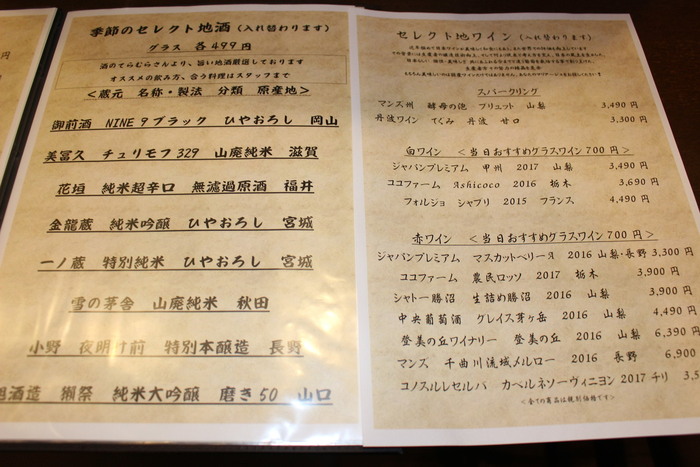 季節のセレクト地酒(入れ替わります)
グラス 各499円
酒のてらむらさんより、旨い地酒厳選しております
オススメの飲み方、合う料理はスタッフまで
<蔵元 名称・製法 分類 原産地>
御前酒 NINE 9ブラック ひやおろし 岡山
美冨久 チュリモフ329 山廃純米 滋賀
花垣 純米超辛口 無濾過原酒 福井
金龍蔵 純米吟醸 ひやおろし 宮城
一ノ蔵 特別純米 ひやおろし 宮城
雪の茅舎 山廃純米 秋田
小野 夜明け前 特別本醸造 長野
旭酒造 獺祭 純米大吟醸 磨き50 山口
セレクト地ワイン(入れ替わります)
スパークリング
マンズ 酵母の泡 ブリュット 山梨 3,490円
丹波ワイン てぐみ 丹波 甘口 3,300円
白ワイン <当日おすすめグラスワイン700円>
ジャパンプレミアム 甲州 2017 山梨 3,490円
ココファーム Ashicoco 2016 栃木 3,690円
フォルジョ シャブリ 2015 フランス 4,490円
赤ワイン <当日おすすめグラスワイン700円>
ジャパンプレミアム マスカットベリーA 2016 山梨・長野 3,300円
ココファーム 農民ロッソ 2017 栃木 3,900円
シャトー勝沼 生詰め勝沼 2016 山梨 3,900円
中央葡萄酒 グレイス茅ヶ岳 2016 山梨 4,490円
登美の丘ワイナリー 登美の丘 2016 山梨 6,390円
マンズ 千曲川流域メルロー 2016 長野 6,900
コノスルレセルバ カベルネソーヴィニヨン 2017 チリ 3,5
<全ての商品は税別価格です>